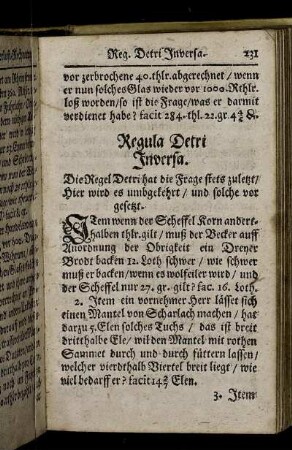 Reg. Detri Inversa. 231
vor zerbrochene 40. thlr. abgerechnet / wenn
er nun solches Glas wieder vor 1000. Rthlr.
loß worden / so ist die Frage / was er darmit
verdienet habe? facit 284. thl. 22. gr. 4⅘ &.
Regula Detri
Inversa.
Die Regel Detri hat die Frage stets zuletzt /
Hier wird es umbgekehrt / und solche vor
gesetzt.
ITem wenn der Scheffel Korn andert-
halben thlr. gilt / muß der Becker auff
Anordnung der Obrigkeit ein Dreyer
Brodt backen 12. Loth schwer / wie schwer
muß er backen / wenn es wolfeiler wird / und
der Scheffel nur 27. gr. gilt? fac. 16. Loth.
2. Item ein vornehmer Herr lässet sich
einen Mantel von Scharlach machen / hat
darzu 5. Elen solches Tuchs / das ist breit
dritthalbe Ele / wil den Mantel mit rothen
Sammet durch und durch füttern lassen /
welcher vierdthalb Viertel breit liegt / wie
viel bedarff er? facit 14 Elen.
3. Item